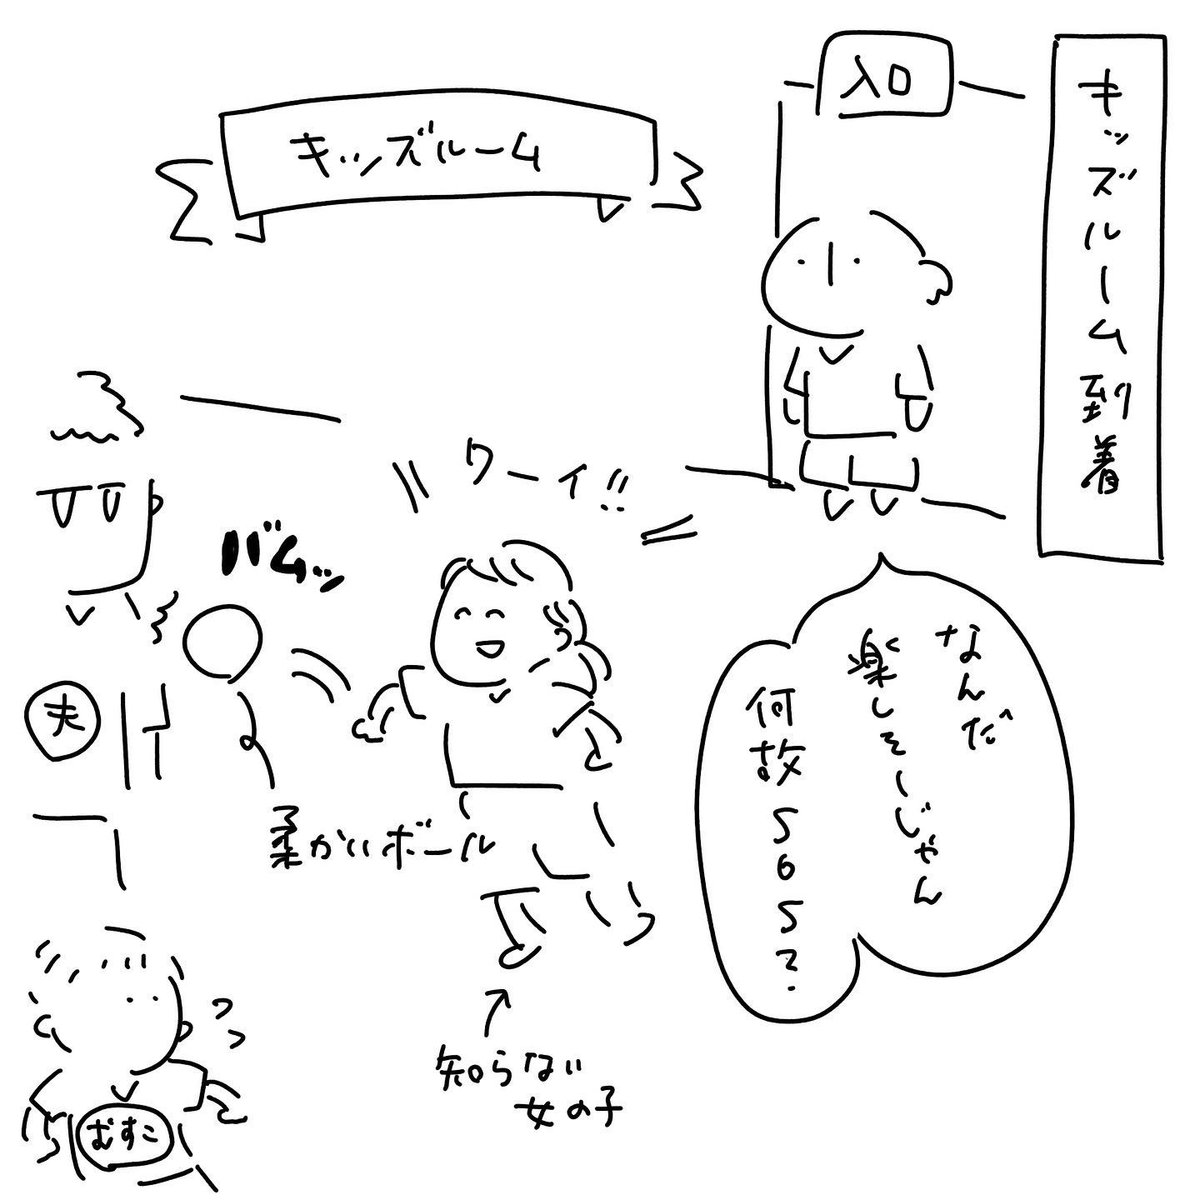 キッズルーム到着
入口
キッズルーム
ワーイ!!
バムッ
なんだ
楽しそーじゃん
何故SOS?
夫
柔かいボール
知らない
女の子
むすこ